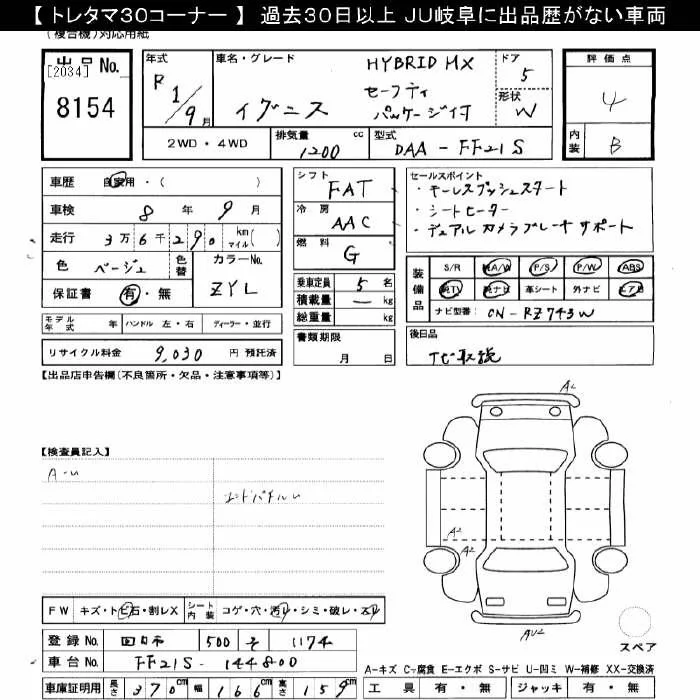 【 トレタマ30コーナー 】 過去30日以上 JU岐阜に出品歴がない車両
(複合機)対応用紙
出品 No.
[2034]
8154
年式 R 1/9 月
車名・グレード
イグニス
HYBRID MX
セーフティ
パッケージ付
ドア 5
形状 W
評価点 4
内装 B
2WD・4WD
排気量 1200 cc
型式 DAA - FF21S
車歴 自家用・( )
車検 8 年 9 月
走行 3万6千290 km マイル( )
色 ベージュ 色替
カラーNo. ZYL
保証書 有・無
シフト FAT
冷房 AAC
燃料 G
乗車定員 5 名
積載量 — kg
総重量 kg
セールスポイント
・キーレスプッシュスタート
・シートヒーター
・デュアルカメラブレーキサポート
装備品
S/R A/W P/S P/W ABS
純TV 純ナビ 革シート 外ナビ エアB
ナビ型番: CN-RZ743W
モデル年式 年 ハンドル 左・右 ディーラー・並行
リサイクル料金 9,030 円 預託済
書類期限
月 日
後日品
【出品店申告欄(不良箇所・欠品・注意事項等)】
【検査員記入】
A-u
A2
A2
A2
AU2
FW キズ・トビ石・割レX
シート内装 コゲ・穴・汚レ・シミ・破レ・スレ
登録 No. 四日市 500 そ 1174
車台 No. FF21S-144800
車庫証明用 長さ 370cm 幅 166cm 高さ 159cm
スペア
A-キズ C-腐食 E-エクボ S-サビ U-凹ミ W-補修 XX-交換済
工具 有・無 ジャッキ 有・無